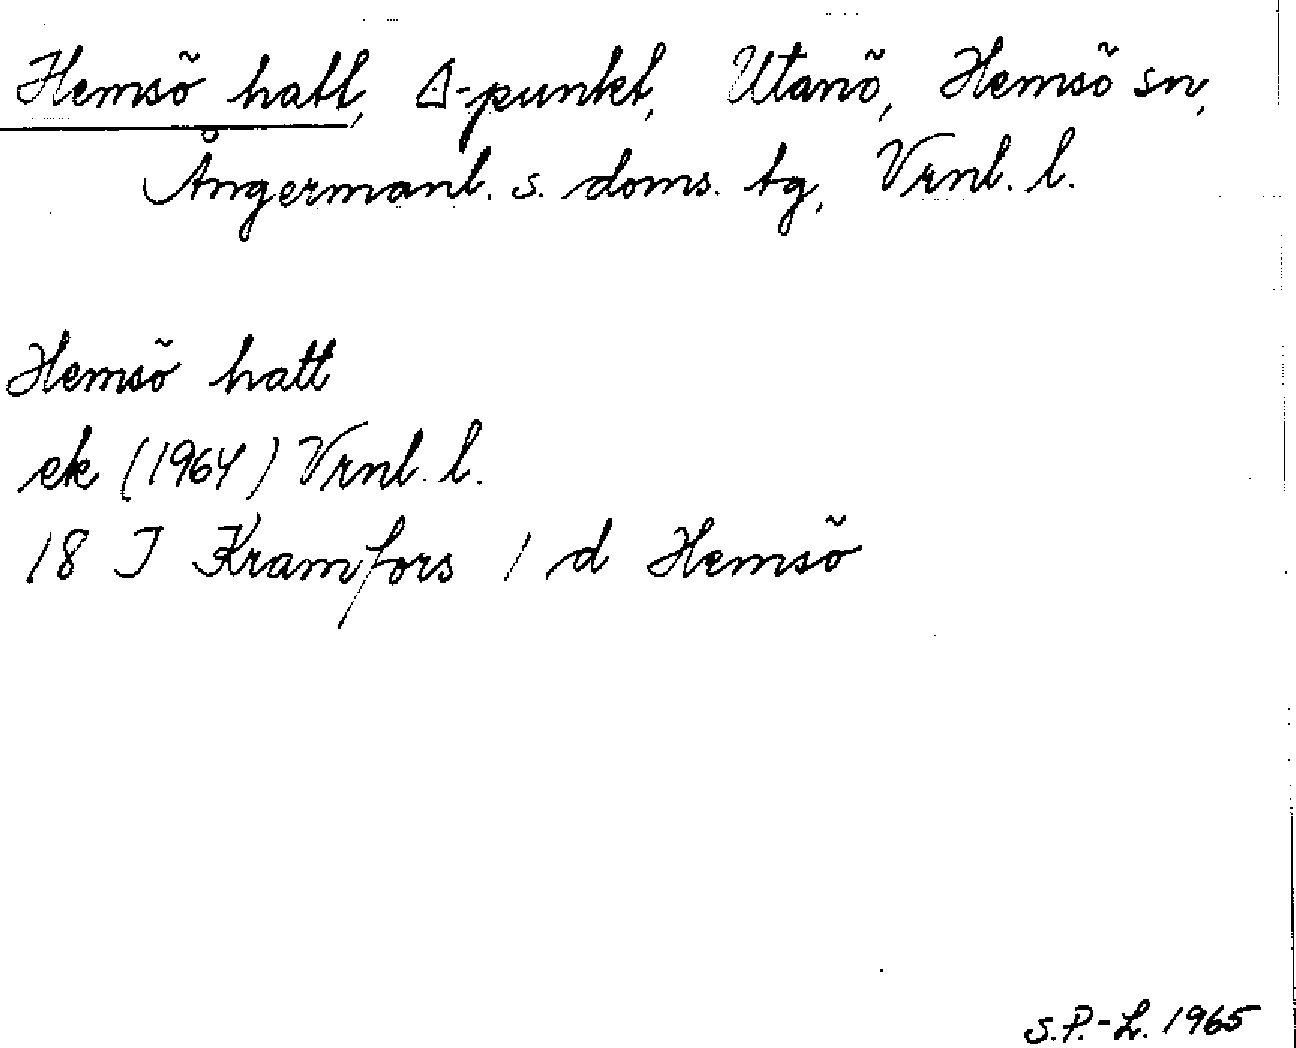 Hemsö hatt, Δ-punkt, Utanö, Hemsö sn,
Ångermanl. s. doms. tg, Vrnl. l.
Hemsö hatt
ek (1964) Vrnl. l.
18 I Kramfors 1 d Hemsö
S.P.-L. 1965